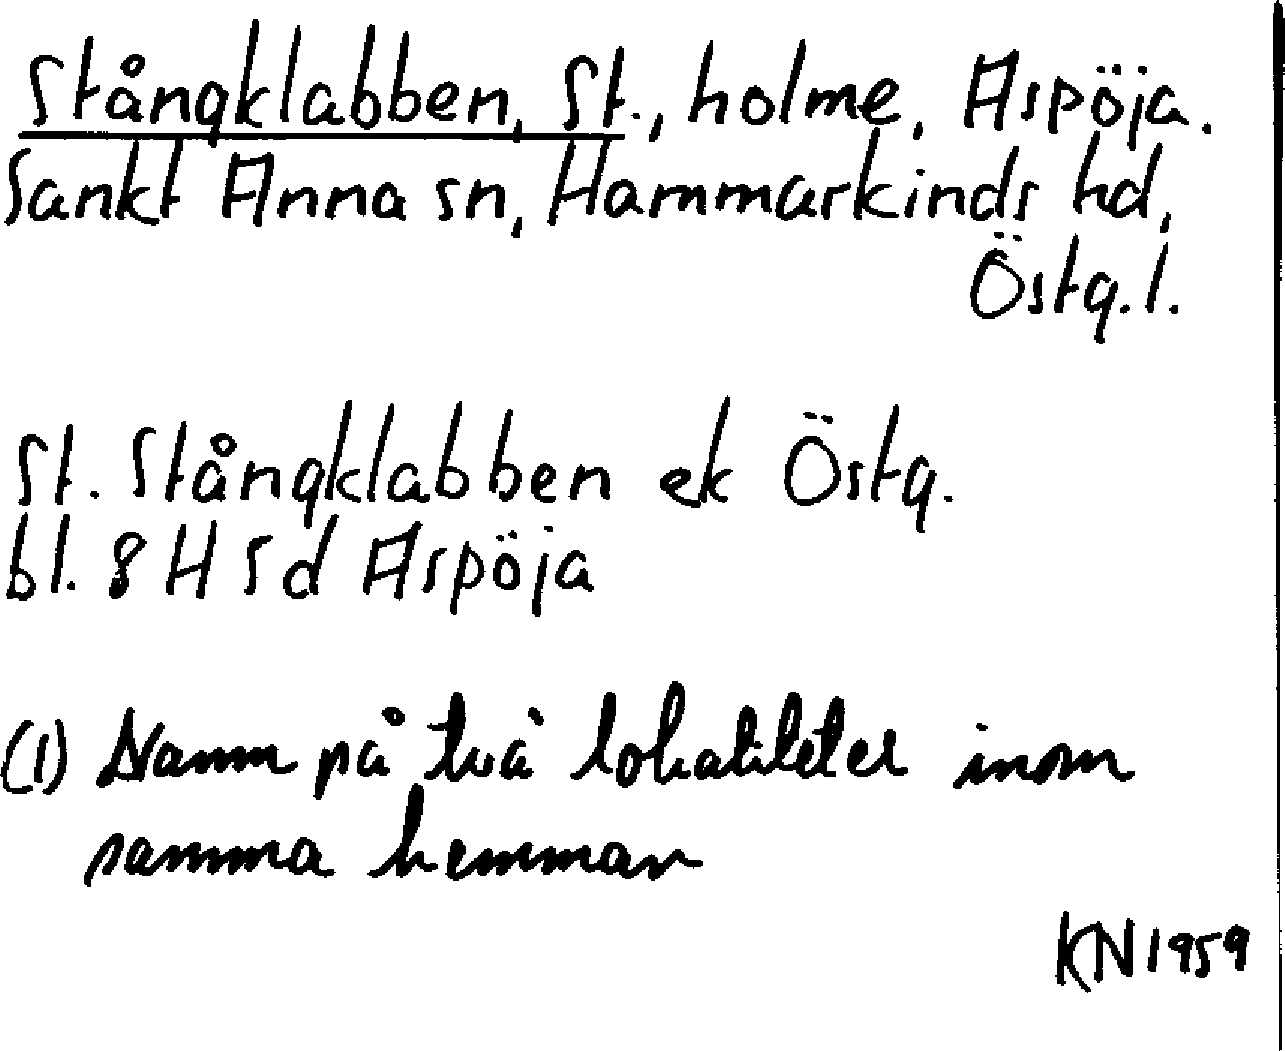 Stångklabben, St., holme, Aspöja.
Sankt Anna sn, Hammarkinds hd,
Östg. l.
St. Stångklabben ek Östg.
bl. 8 H 5 d Aspöja
(1) Namn på två lokaliteter inom
samma hemman
KN 1959